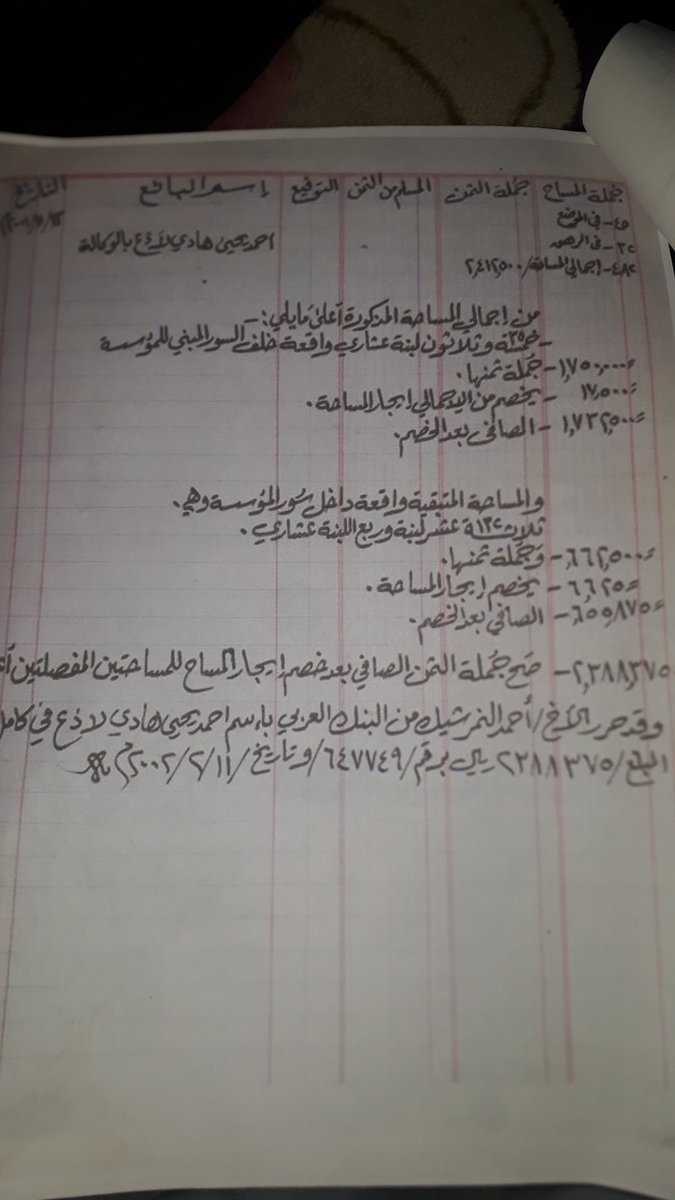 جملة المساح جملة الثمن المسلم من الثمن التوقيع إسم البائع التاريخ
٤٥- في الموضع
٣٢- في الرهد احمد يحيى هادي لاذع بالوكالة
٤٨٢- اجمالي المسافة/ ٢,٤١٢,٥٠٠
من إجمالي المساحة المذكورة أعلى مايلي:-
- خمسة ٣٥ وثلاثون لبنة عشاري واقعة خلف السور المبني للمؤسسة
١,٧٥٠,٠٠٠- جملة ثمنها.
١٧,٥٠٠ - يخصم من الإجمالي إيجار المساحة.
١,٧٣٢,٥٠٠- الصافي بعد الخصم.
والمساحة المتبقية واقعة داخل سور المؤسسة وهي.
ثلاثة عشر لبنة وربع اللبنة عشاري.
٦٦٢,٥٠٠,- وجملة ثمنها.
٦,٦٢٥- يخصم إيجار المساحة.
٦٥٥,٨٧٥- الصافي بعد الخصم.
٢,٣٨٨,٣٧٥- صح جملة الثمن الصافي بعد خصم إيجار المساح للمساحتين المفصلتين
وقد حرر الأخ/ أحمد النمر شيك من البنك العربي باسم احمد يحيى هادي لاذع في كامل
المبلغ/ ٢٣٨٨٣٧٥ ريال برقم/ ٦٤٧٧٤٩/ وتاريخ/ ٢٠٠٢/٢/١١م